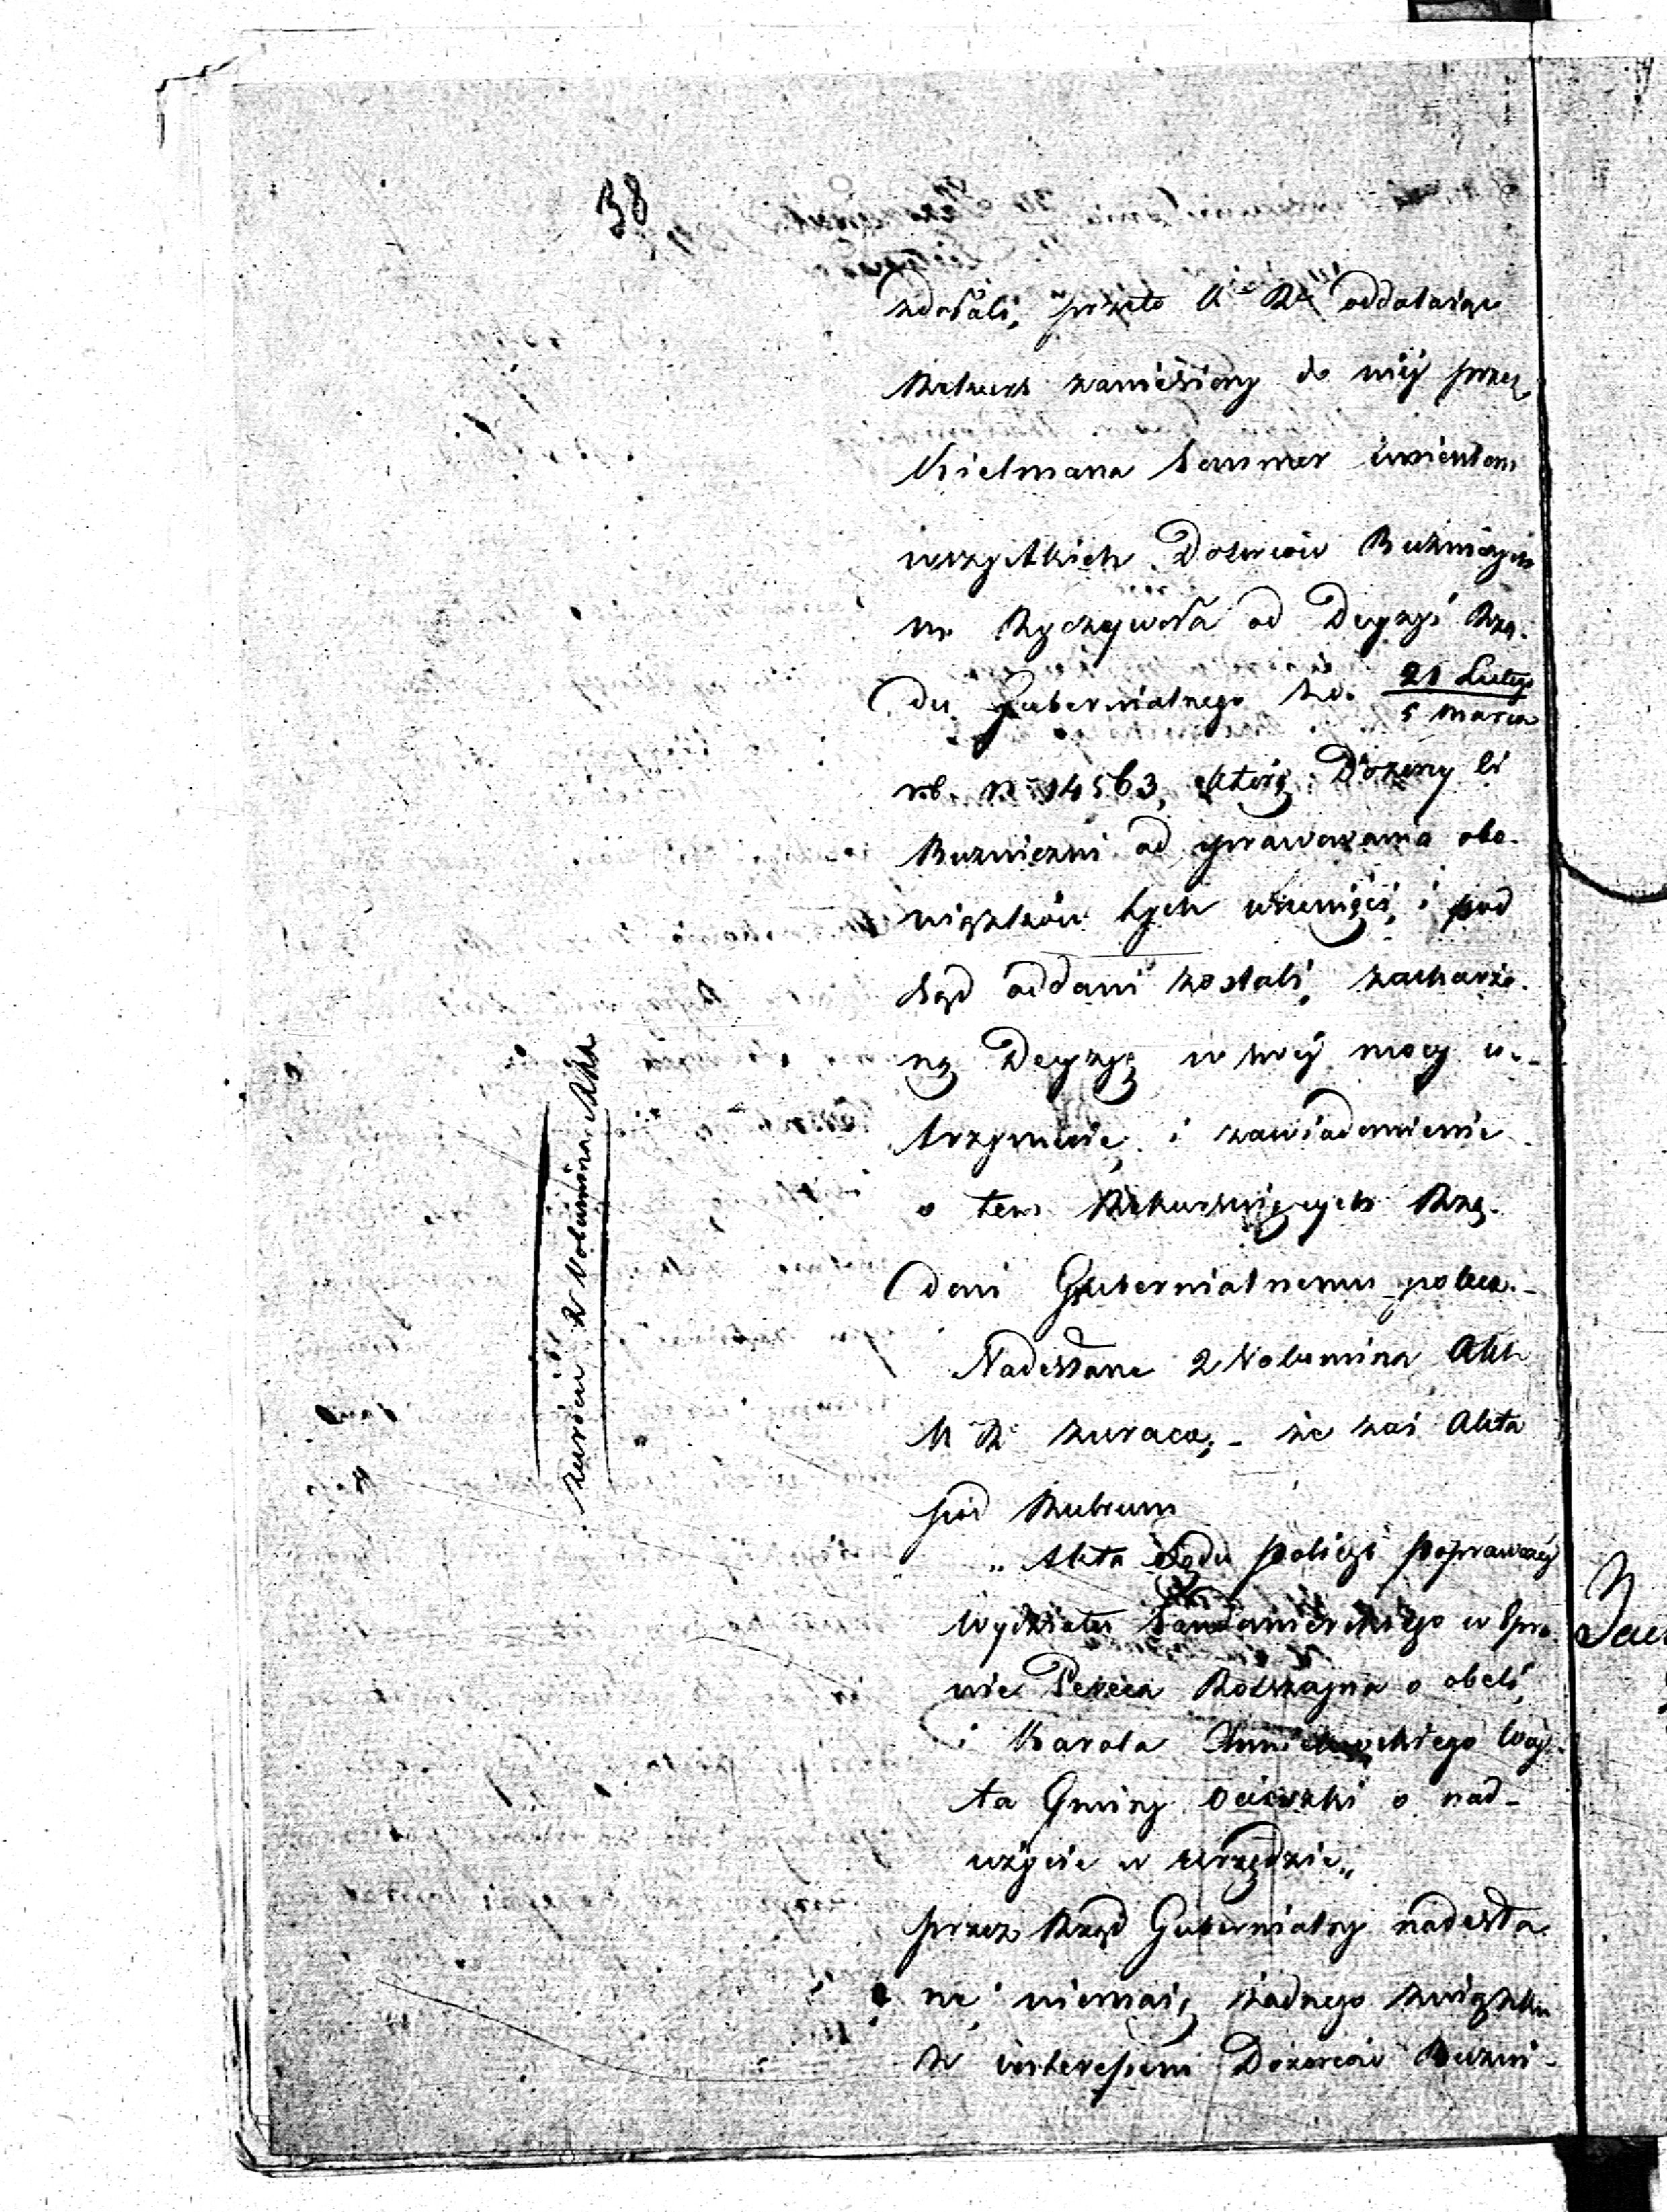 38
zdołali, przeto K R oddalając
Rekurs zaniesiony do niej przez
Kielmana Lesmer imieniem
wszystkich Dozorców Bużniczych
m. Ryczywoła od Decyzyi Rzą-
du Gubernialnego z d. 21 Lutego / 5 Marca
r.b. N 14563, którą Dozorcy ci
Bużniczni od sprawowania obo-
wiązków tych usunięci, i pod
Sąd oddani zostali, zaskarżo-
ną Decyzyą w swej mocy u-
trzymuie, i zawiadomienie
o tem Rekursuiących Rzą-
dowi Gubernialnemu poleca.-
Nadesłane 2 Volumina Akt
K R zwraca,- że zaś Akta
pod Rubrum
„Akta Sądu Policyi Poprawczej
Wydziału Sandomierskiego w Spra-
wie Pereca Rotszajna o obelgi,
i Karola Wój-
ta Gminy o nad-
użycie w urzędzie„
przez Rząd Gubernialny nadesła-
ne, niemaią żadnego związku
z interesem Dozorców Bużni-
zwrócić 2 Volumina Akt